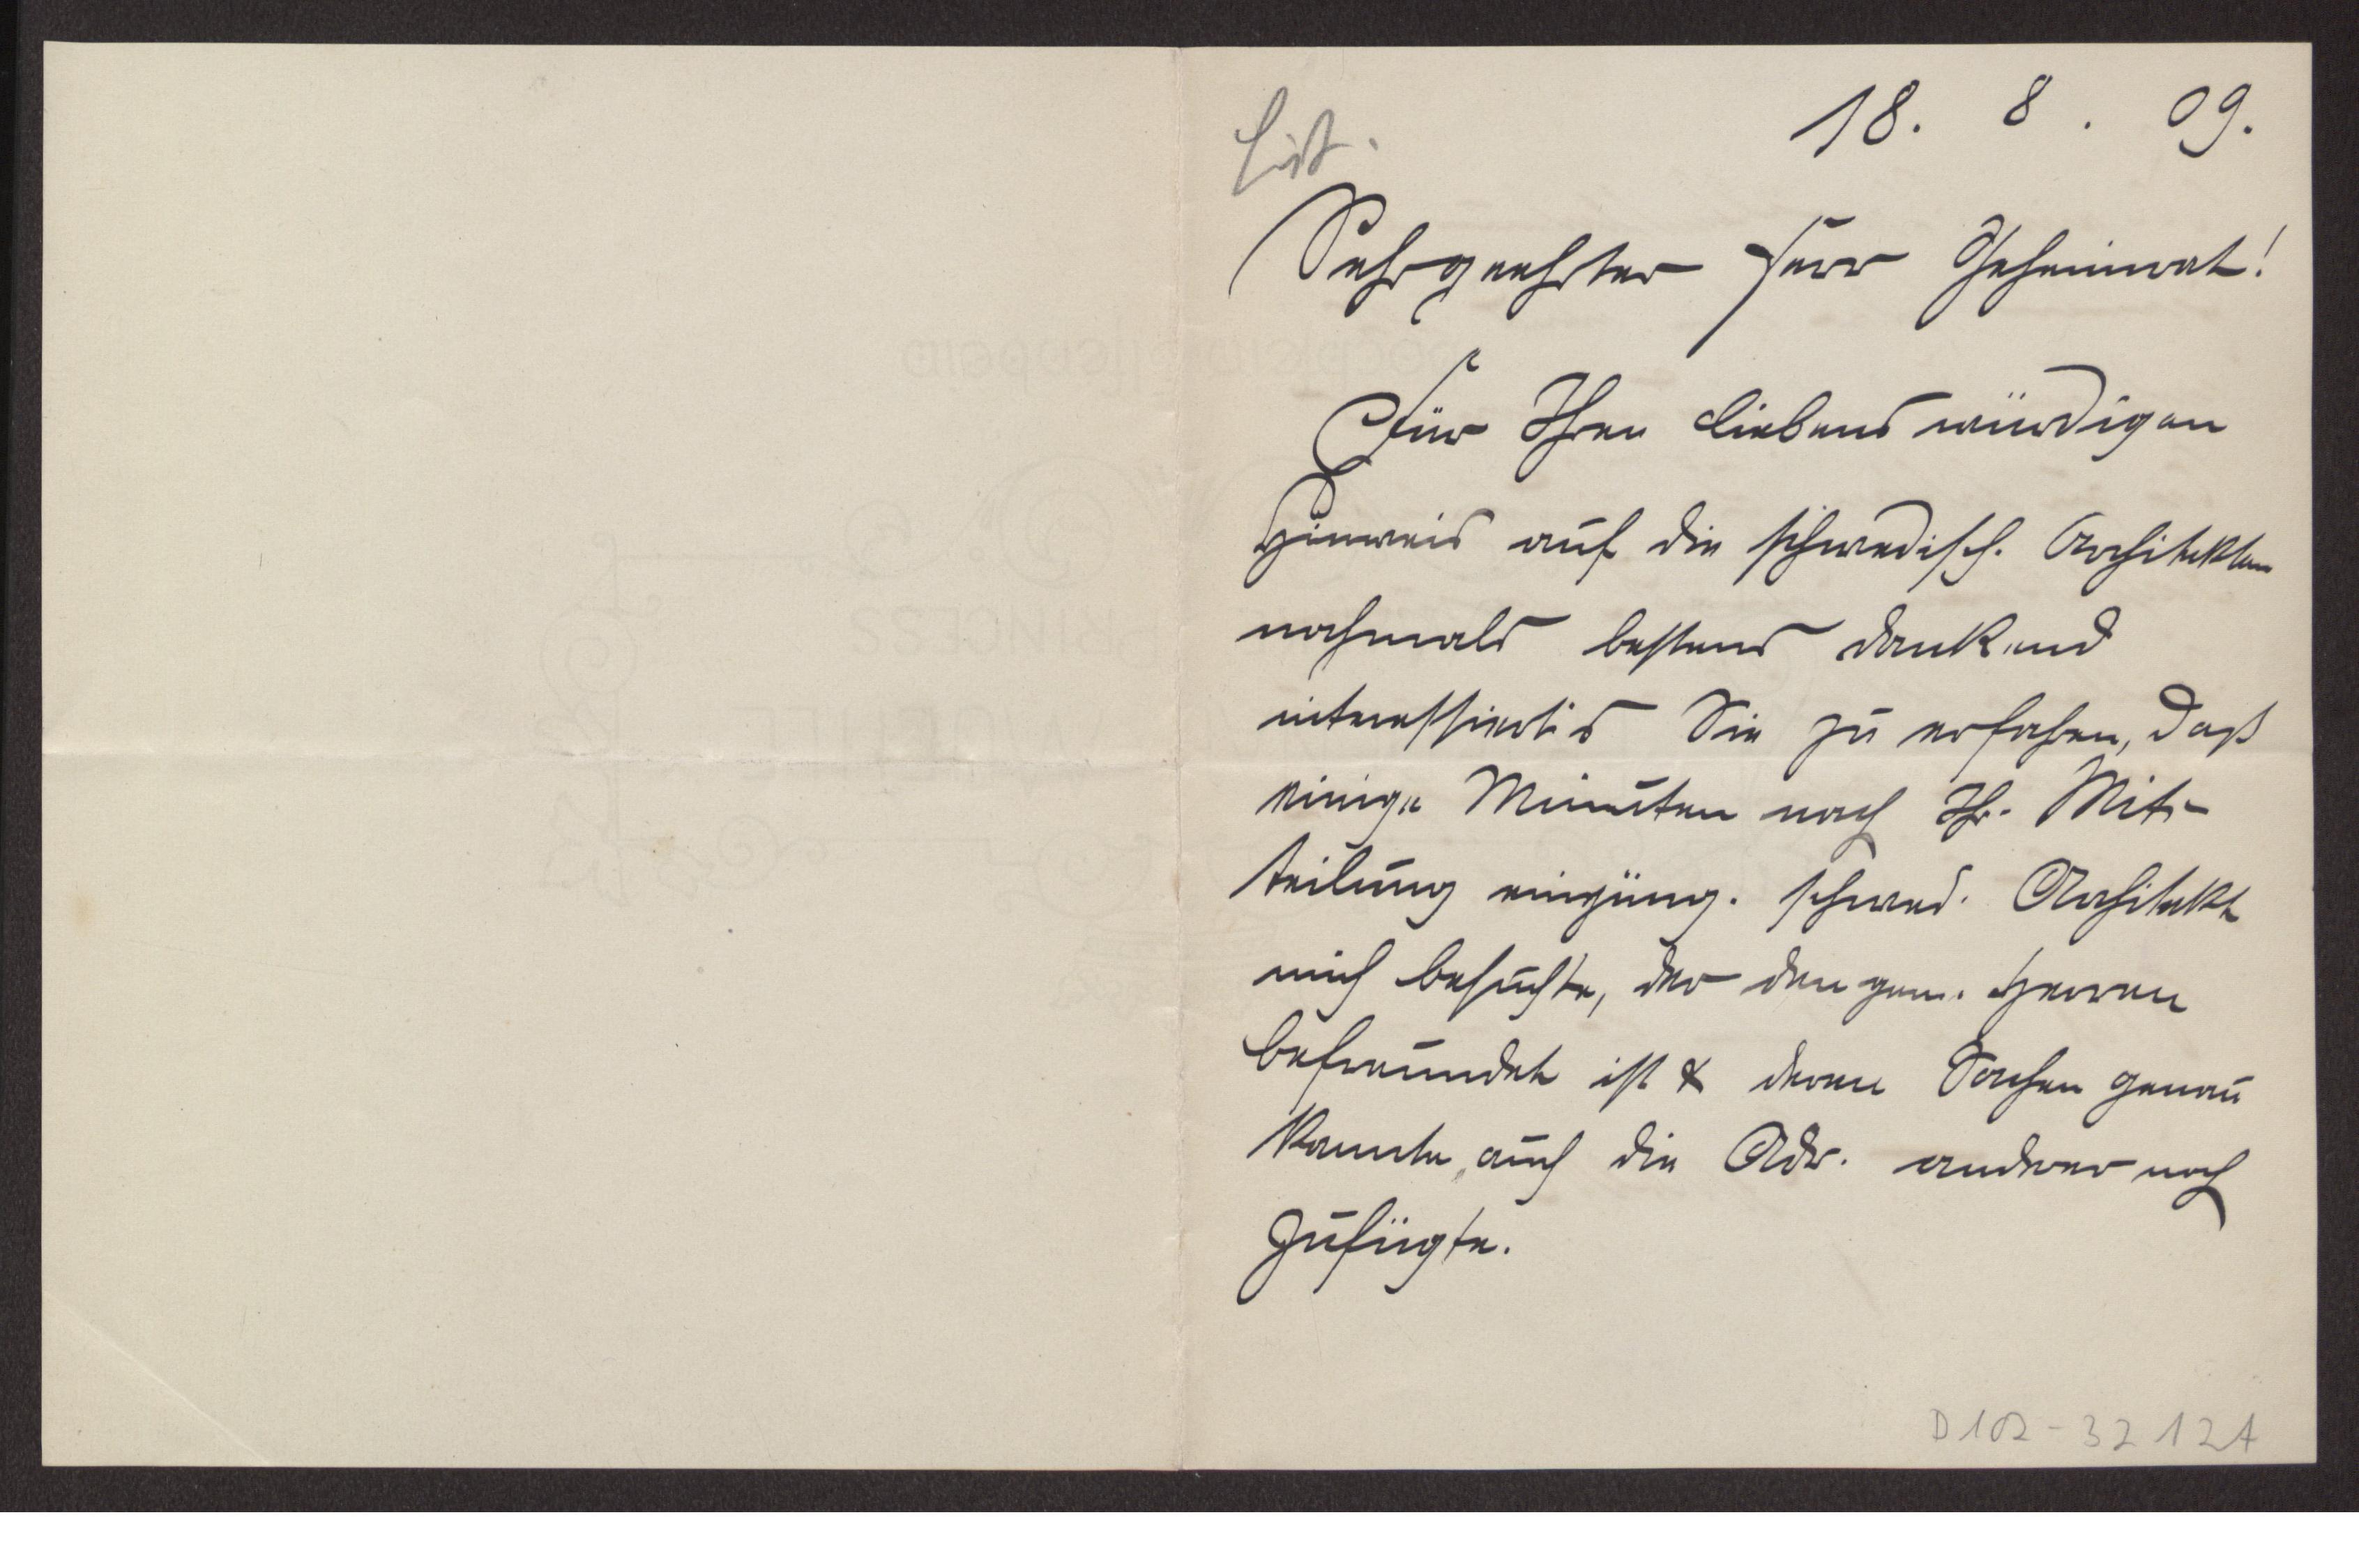 18. 8. 09.
List.
Sehrgeehrter Herr Geheimrat!
Für Ihren liebenswürdigen
Hinweis auf die schwedisch. Architekten
nochmals bestens dankend
interessierts Sie zu erfahren, daß
einige Minuten nach Ihr. Mit-
teilung ein schwed. Architekt
mich besuchte, der den gen. Herren
befreundet ist & deren Sachen genau
kannte, auch die Adr. anderer noch
zufügte.
D182-3212A